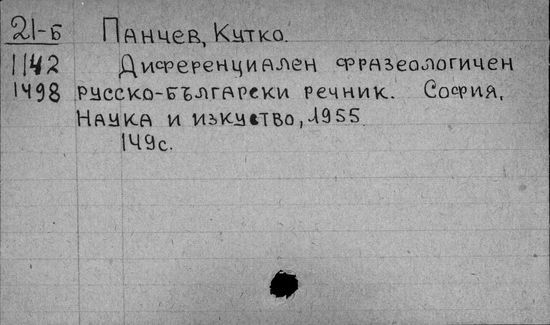 21-Б Панчев, Кутко.
1142 Диференциален фразеологичен
1498 русско-български речник. София,
Наука и изкуство, 1955.
149с.